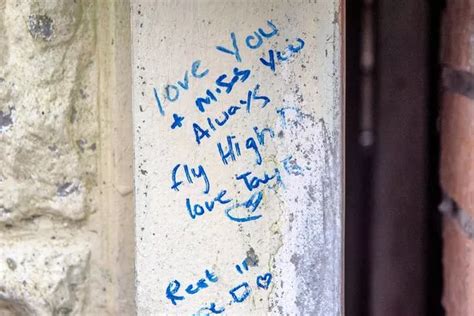 love You
+ Miss You
Always
fly High
love
Rest in